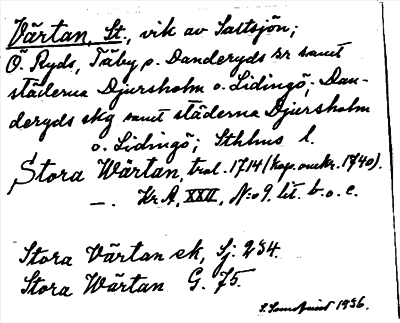 Värtan, St., vik av Saltsjön;
Ö. Ryds, Täby o. Danderyds sr samt
städerna Djursholm o. Lidingö; Dan-
deryds skg samt städerna Djursholm
o. Lidingö; Sthlms l.
Stora Wärtan, trol. 1714 (kop. omkr. 1740).
—. Kr. A, XXII, N:o 9. lit. b. o. c.
Stora Värtan ek, Sj: 234.
Stora Wärtan G. 75.
1936.